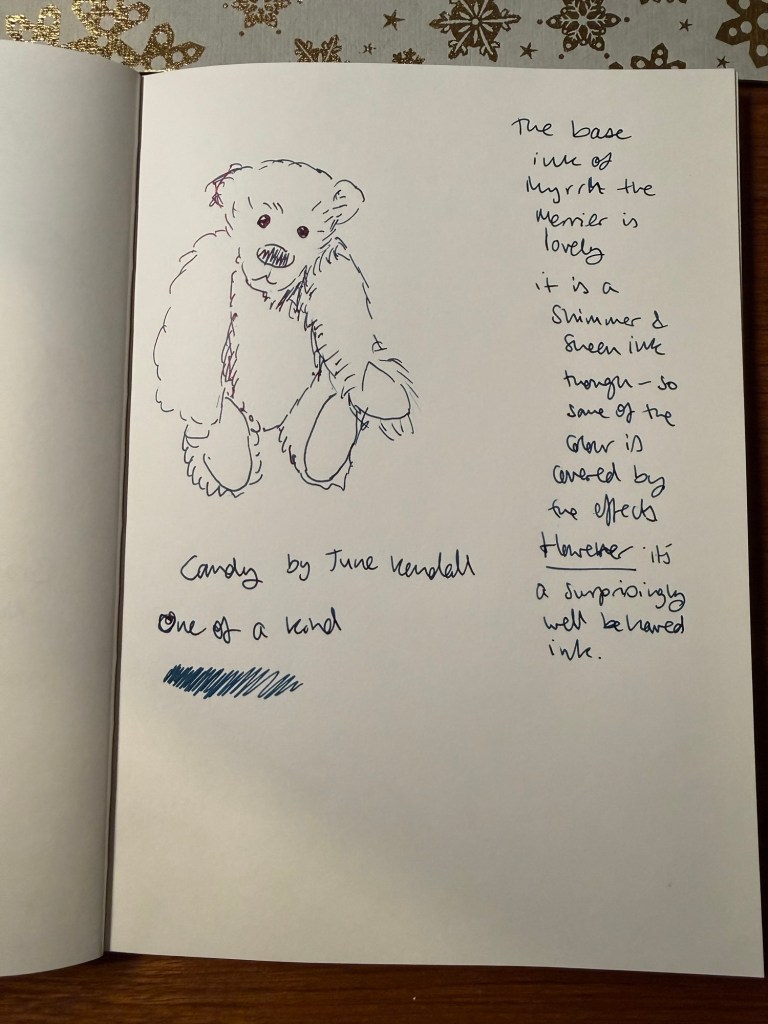 The base
ink of
Myrrh the
Merrier is
lovely
it is a
Shimmer &
Sheen ink
though - so
some of the
colour is
covered by
the effects
However it's
a surprisingly
well behaved
ink.
Candy by June Kendall
One of a kind